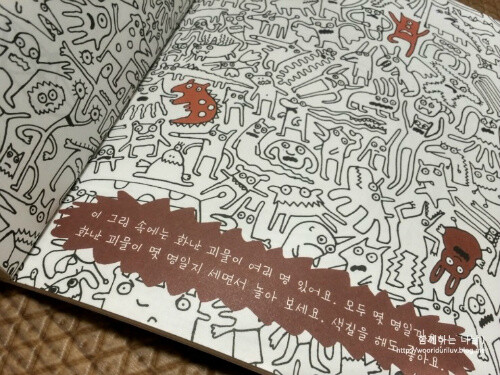 이 그림 속에는 화난 괴물이 여러 명 있어요. 모두 몇 명일까요?
화난 괴물이 몇 명일지 세면서 놀아 보세요. 색칠을 해도 좋아요.
함께하는 나날
http://wooriduriluv.blog.me